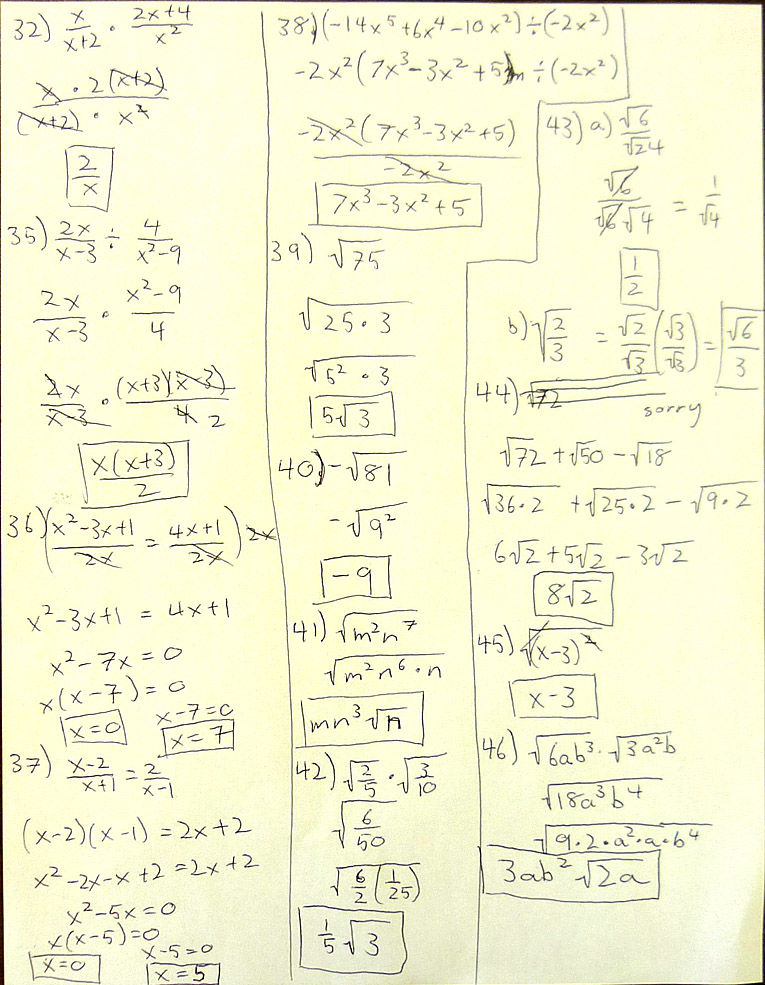 32) x/(x+2) · (2x+4)/x²
x · 2(x+2) / (x+2) · x²
2/x
35) 2x/(x-3) ÷ 4/(x²-9)
2x/(x-3) · (x²-9)/4
2x/(x-3) · (x+3)(x-3)/4 2
x(x+3)/2
36) ((x²-3x+1)/2x = (4x+1)/2x) 2x
x²-3x+1 = 4x+1
x²-7x=0
x(x-7)=0
x=0 x-7=0
x=7
37) (x-2)/(x+1) = 2/(x-1)
(x-2)(x-1) = 2x+2
x²-2x-x+2=2x+2
x²-5x=0
x(x-5)=0
x-5=0
x=0 x=5
38) (-14x⁵+6x⁴-10x²)÷(-2x²)
-2x²(7x³-3x²+5) ÷(-2x²)
-2x²(7x³-3x²+5) / -2x²
7x³-3x²+5
39) √75
√25·3
√5²·3
5√3
40) -√81
-√9²
-9
41) √m²n⁷
√m²n⁶·n
mn³√n
42) √(2/5) · √(3/10)
√(6/50)
√(6/2(1/25))
1/5 √3
43) a) √6/√24
√6/√6√4 = 1/√4
1/2
b) √(2/3) = √2/√3 (√3/√3) = √6/3
44) √72
sorry
√72+√50-√18
√36·2 +√25·2-√9·2
6√2+5√2-3√2
8√2
45) √(x-3)²
x-3
46) √6ab³·√3a²b
√18a³b⁴
√9·2·a²·a·b⁴
3ab²√2a